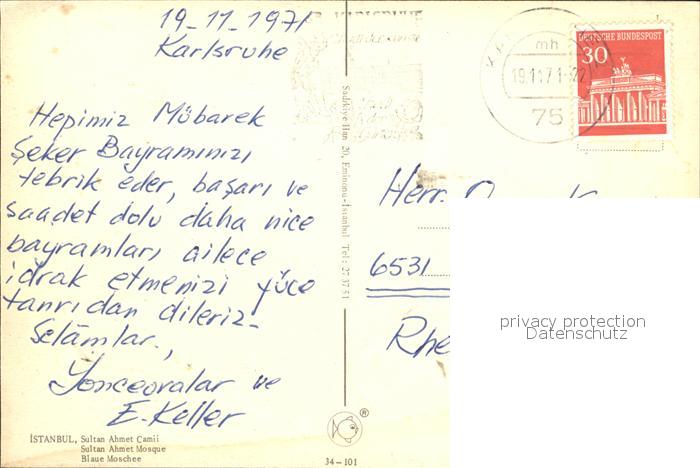 19-11-1971
Karlsruhe
Hepimiz Mübarek
Şeker Bayramınızı
tebrik eder, başarı ve
saadet dolu daha nice
bayramları ailece
idrak etmenizi yüce
tanrıdan dileriz-
Selâmlar.,
Yonceoralar ve
E. Keller
İSTANBUL, Sultan Ahmet Camii
Sultan Ahmet Mosque
Blaue Moschee
Sadıkiye Han 20, Eminönü-İstanbul Tel: 27 37 51
®
34-101
mh
19.11.71-22
75
DEUTSCHE BUNDESPOST
30
Herr.
6531
Rhe
privacy protection
Datenschutz